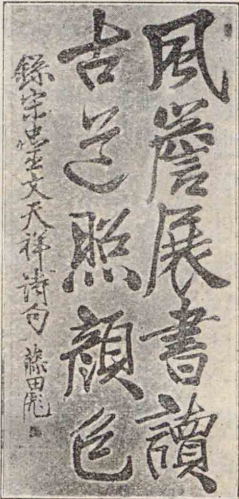 風簷展書讀
古道照顏色
錄宋忠臣文天祥詩句 藤田彪